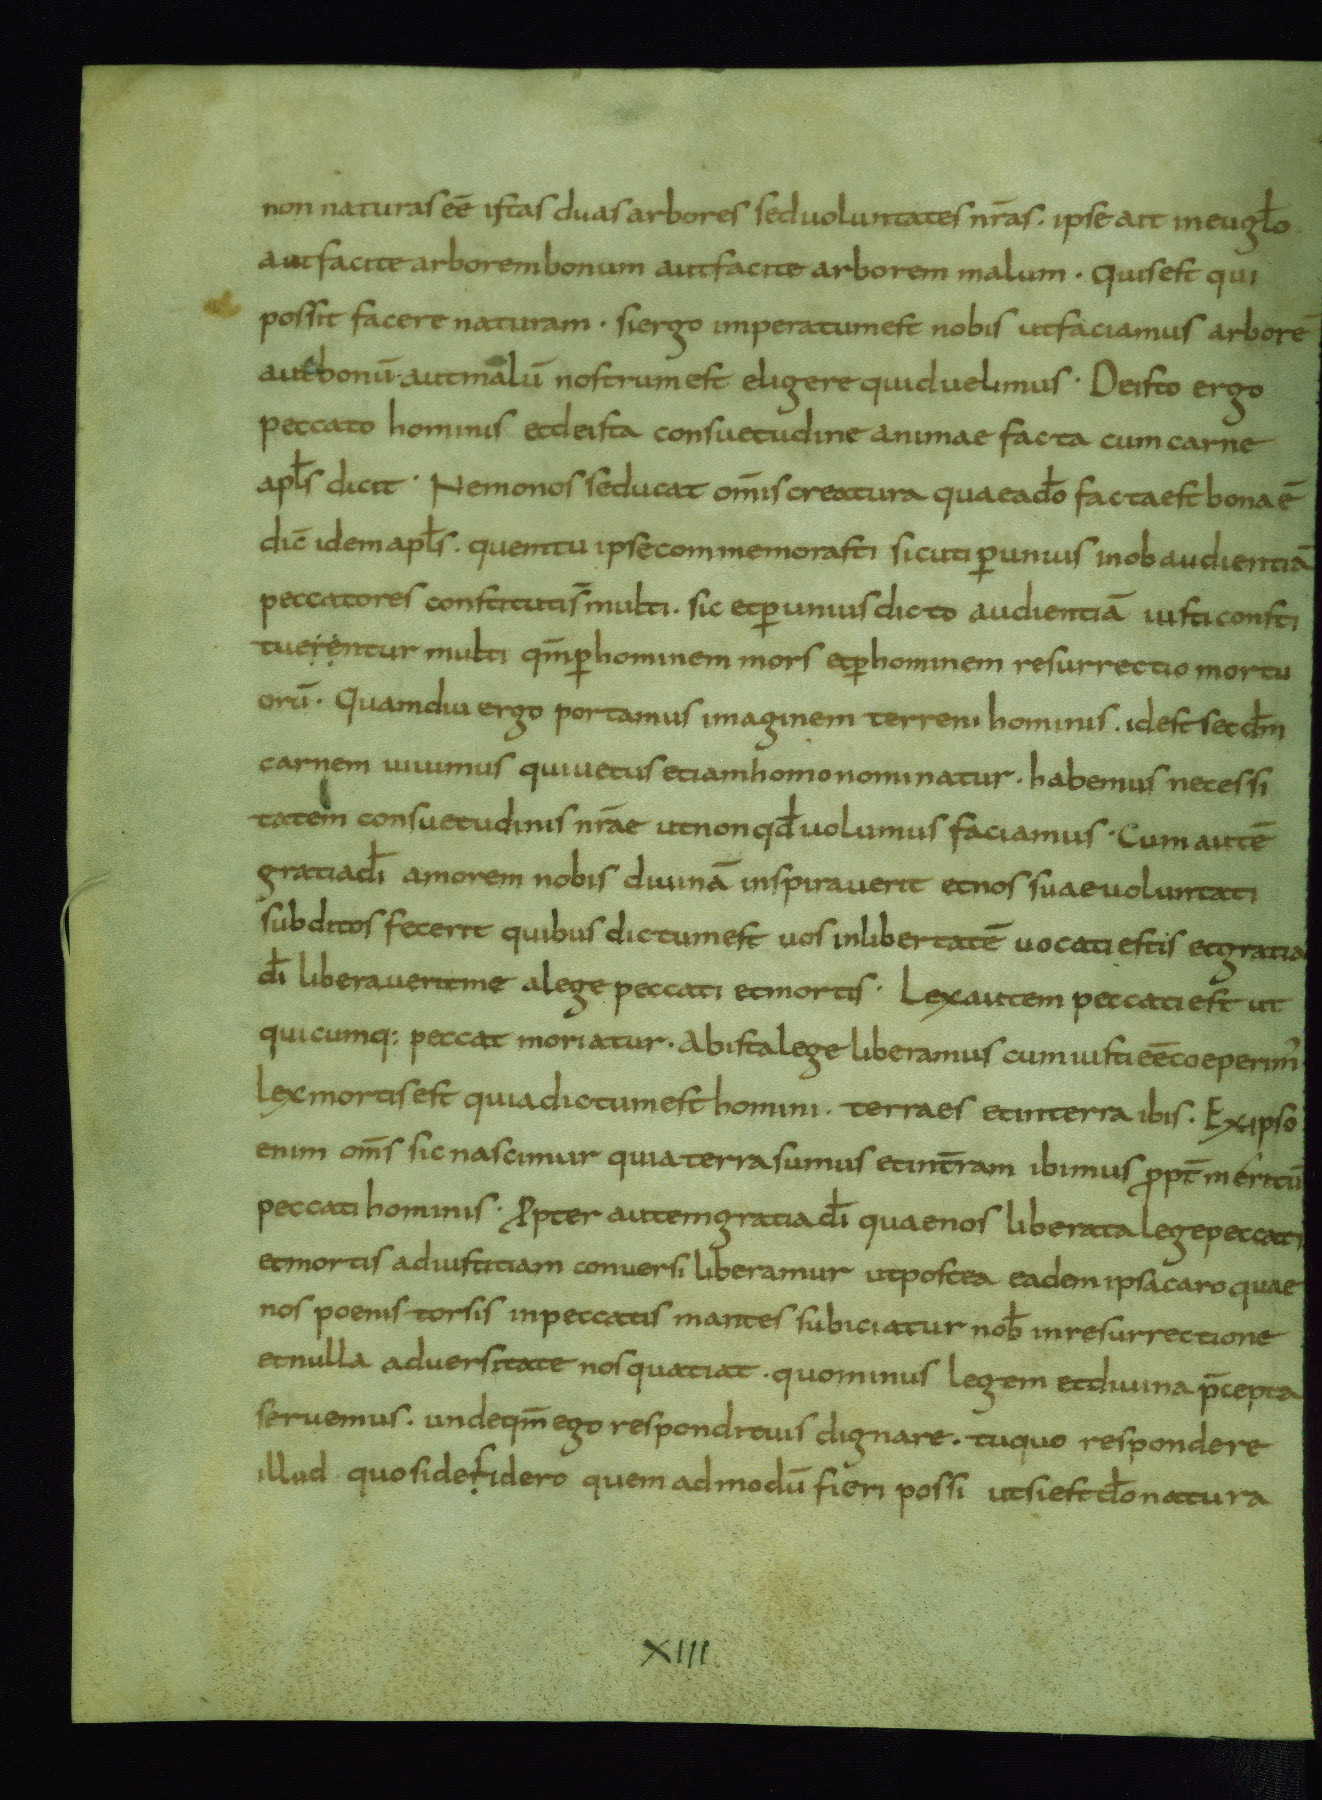 non naturas eē istas duas arbores sed uoluntates nr̄as. ipse ait in eugl̄o
aut facite arborem bonum aut facite arborem malum. Quis est qui
possit facere naturam. si ergo imperatum est nobis ut faciamus arborē
aut bonū. aut malū nostrum est eligere quid uelimus. De isto ergo
peccato hominis et de ista consuetudine animae facta cum carne
apl̄s dicit. Nemo nos seducat om̄is creatura quae a d̄o facta est bona ē
dic̄ idem apl̄s. quem tu ipse commemorasti sicuti ꝑ unius inobaudientiā
peccatores constituti s̄ multi. sic et ꝑ unius dicto audientiā iusti consti
tuerentur multi qm̄ ꝑ hominem mors et ꝑ hominem resurrectio mortu
orū. Quamdiu ergo portamus imaginem terreni hominis. id est secd̄m
carnem uiuimus qui uetus etiam homo nominatur. habemus necessi
tatem consuetudinis nr̄ae ut non qd̄ uolumus faciamus. Cum autē
gratia d̄i amorem nobis diuinā inspirauerit et nos suae uoluntati
subditos fecerit quibus dictum est uos in libertatē uocati estis et gratia
d̄i liberauerit me a lege peccati et mortis. Lex autem peccati est ut
quicumq: peccat moriatur. Ab ista lege liberamus cum iusti eē coeperim̄.
Lex mortis est quia dictum est homini. terra es et in terra ibis. Ex ipso
enim om̄s sic nascimur quia terra sumus et in t̄ram ibimus ꝓpt̄ meritū
peccati hominis. Ꝓpter autem gratia d̄i quae nos liberat a lege peccati
et mortis ad iustitiam conuersi liberamur ut postea eadem ipsa caro quae
nos poenis torsis in peccatis mantes subiciatur nob̄ in resurrectione
et nulla aduersitate nos quatiat. quominus legem et diuina p̄cepta
seruemus. unde qm̄ ego respondi tuis dignare. tu quo respondere
illud quo si desidero quem ad modū fieri possi ut si est d̄o natura
XIII